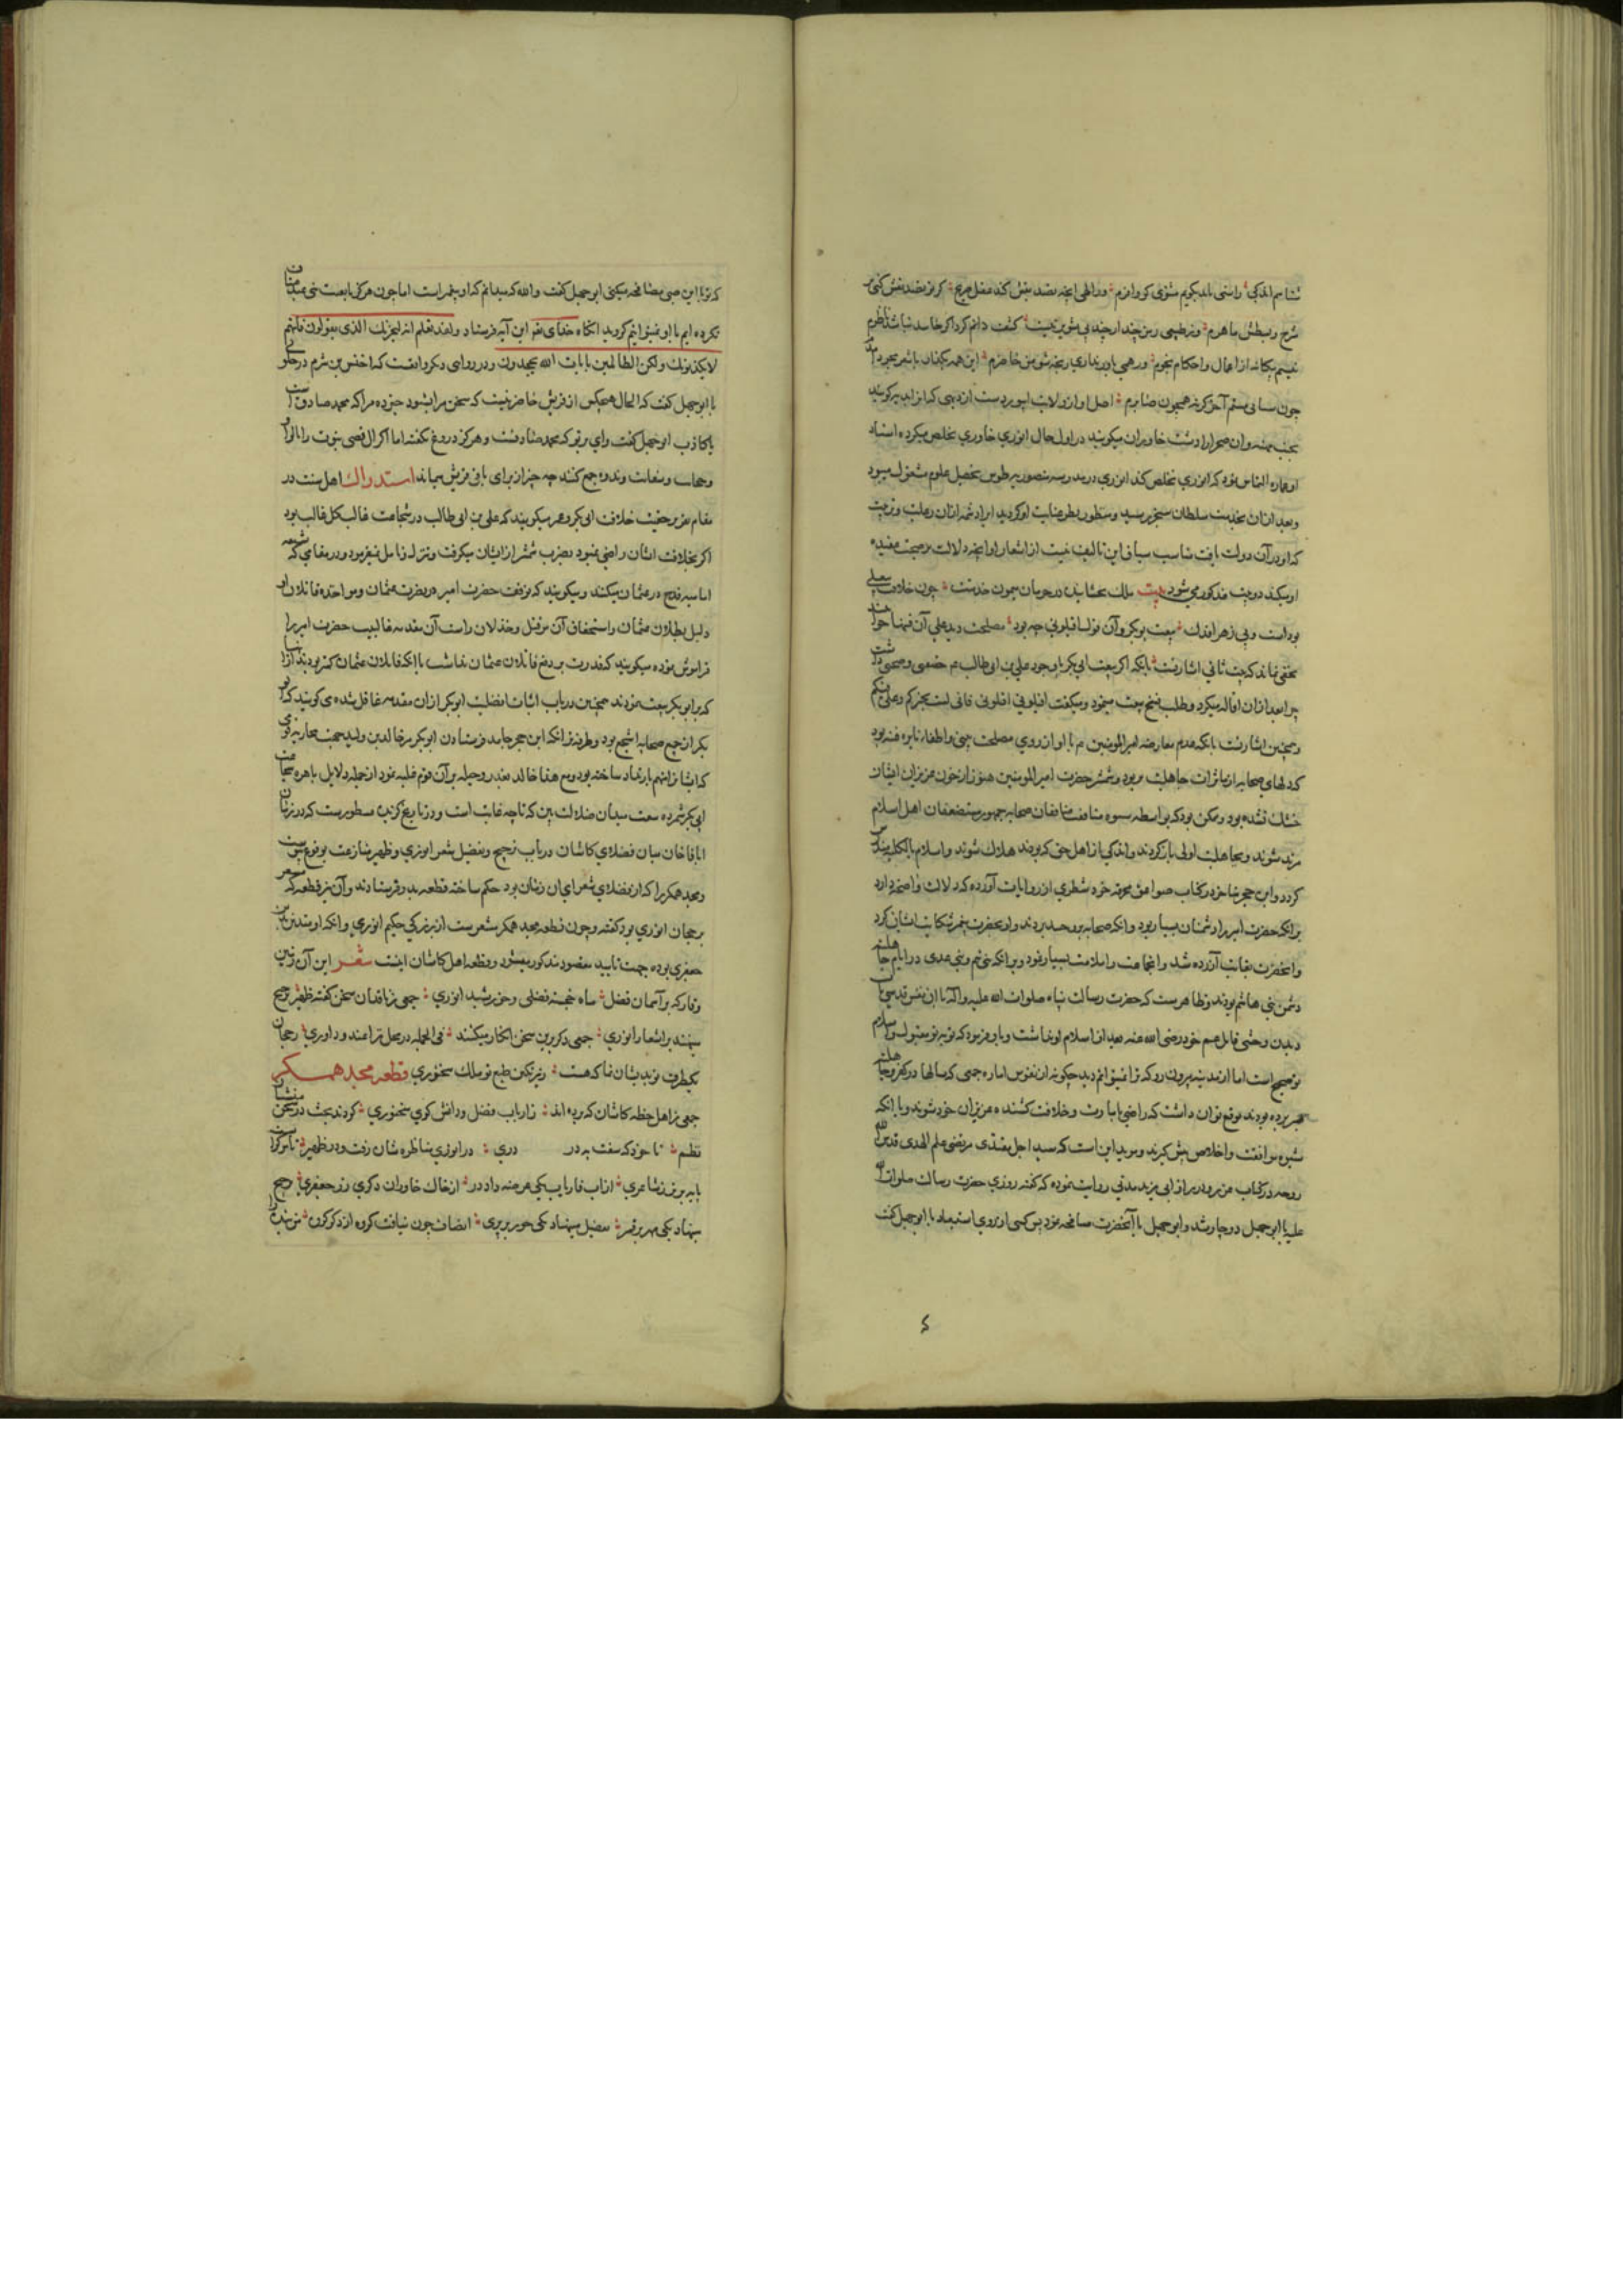 نشناسم اندکی راستی باید بگویم
شرح و بسطش ماهرم
نیستم بیگانه از اعمال و احکام نجوم ور همی باور نداری رنجه شو من حاضرم
چون سنایی هستم آخر گرنه همچون صابرم اصل او از ولایت ابیورد است از دهی که آنرا بدنه گویند
بجنب مهنه و آن صحرا را دشت خاوران میگویند در اول حال انوری خاوری تخلص میکرده استاد
او عماره التماس نمود که انوری تخلص کند انوری در مدرسه منصوریه طوس بتحصیل علوم مشغول میبود
و بعد از آن بخدمت سلطان سنجر رسید و منظور نظر عنایت او گردید
که او در آن دولت یافت مناسب سیاق این تالیف نیست از اشعار او آنچه دلالت بر صحت عقیده
او میکند دو بیت مذکور می شود بیت
بیعت بوبکر و آن قول اقیلونی چه بود مصلحت دید علی آن
مخفی نماند که بیت ثانی اشارتست بانکه اگر بیعت ابی بکر با وجود علی بن ابی طالب
چرا بعد از آن اقاله میکرد و طلب فسخ بیعت مینمود و میگفت اقیلونی اقیلونی فانی لست بخیرکم و علی فیکم
و همچنین اشارتست بانکه عدم معارضه امیر المومنین با او از روی مصلحت بینی و اطفاء نایره فتنه بود
که دلهای صحابه از تاثرات جاهلیت و شمشیر حضرت امیر المومنین هنوز از خون عزیزان ایشان
خشک نشده بود و ممکن بود که بواسطه منافقان صحابه جمهور مستضعفان اهل اسلام
مرتد شوند و بجاهلیت اولی باز گردند و اندکی از اهل حق که بودند هلاک شوند و اسلام بالکلیه
گردد و ابن حجر متاخر در کتاب صواعق محرقه خود شطری از روایات آورده که دلالت واضحه دارد
بر آنکه حضرت امیر را دشمنان بسیار بود و آنکه صحابه برو حسد بردند و او بحضرت پیغمبر شکایت ایشان کرد
و آنحضرت بغایت آزرده شد و آنجماعت را ملامت بسیار نمود و بر آنکه بنی تیم و بنی عدی در ایام جاهلیت
دشمن بنی هاشم بودند و ظاهرست که حضرت رسالت پناه صلوات الله علیه و آله با آن نفس قدسی تاب
دیدن وحشی قاتل عم خود رضی الله عنه بعد از اسلام او نداشت و با او فرمود که توبه تو مقبول و اسلام
تو صحیح است اما از مدینه بیرون رو که ترا نمیتوانم دید چگونه از نفوس اماره جمعی که سالها در کفر و جاهلیت
بسر برده بودند توقع توان داشت که راضی بامارت و خلافت کشنده عزیزان خود شوند و با آنکه
شیوه موافقت و اخلاص پیش گیرند و موید این است که سید اجل مقتدی مرتضی علم الهدی قدس الله
روحه در کتاب غرر و درر از ابی یزید مدنی روایت نموده که گفته روزی حضرت رسالت صلوات الله
علیه با ابو جهل دوچار شد و ابو جهل با آنحضرت مصافحه نمود پس کسی از روی استبعاد با ابو جهل گفت
که تو با این صبی مصافحه میکنی ابو جهل گفت والله که میدانم که او پیغمبر است اما چون هرگز ما تبعیت بنی عبد مناف
نکرده ایم با او نمیتوانیم گروید آنگاه خدای تعالی این آیه فرستاد و لقد نعلم انه لیحزنک الذی یقولون فانهم
لا یکذبونک ولکن الظالمین بایات الله یجحدون و در روایت دیگر واقعست که اخنس بن شریق در خلوتی
با ابو جهل گفت که الحال هیچکس از قریش حاضر نیست که سخن مرا بشنود خبر ده مرا که محمد صادق است
یا کاذب ابو جهل گفت وای بر تو که محمد صادقست و هرگز دروغ نگفته اما اگر آل قصی نبوت را با لوا
و حجابت و سقایت و ندوه جمع کنند چه چیز از برای باقی قریش میماند استدراک اهل سنت در
مقام تقریر حقیت خلافت ابی بکر و عمر میگویند که علی بن ابی طالب در شجاعت غالب کل غالب بود
اگر بخلافت ایشان راضی نمیبود بضرب شمشیر از ایشان میگرفت و تنزل و تامل نمیفرمود و در مقامی که شیعه
امامیه قدح در عثمان میکنند و میگویند که توقف حضرت امیر در نصرت عثمان و مواخذه قاتلان او
دلیل بطلان عثمان و استحقاق آن بر قتل و خذلان او است آن مقدمه غالبیت حضرت امیر را
فراموش نموده میگویند که قدرت بر دفع قاتلان عثمان نداشت با آنکه قاتلان عثمان کمتر بودند از آنها
که با ابو بکر بیعت نمودند همچنین در باب اثبات افضلیت ابو بکر از آن مقدمه غافل شده می گویند که ابو
بکر از جمیع صحابه اشجع بود و طرفه تر آنکه ابن حجر جامد فرستادن ابو بکر مر خالد بن ولید را بجهت محاربه قومی
که ایشانرا متهم بارتداد ساخته بود و مع هذا خالد بغدر و حیله بر آن قوم غلبه نمود از جمله دلایل باهره شجاعت
ابی بکر شمرده سعت میدان ضلالت بین که تا چه غایت است و در تاریخ گزیده مسطورست که در زمان
اباقا خان میان فضلای کاشان در باب ترجیح و تفضیل شعر انوری و ظهیر منازعت بوقوع پیوست
و مجد همگر را که از فضلای شعرای آن زمان بود حکم ساخته قطعه بدو فرستادند و آن نیز قطعه که مشعر
برجحان انوری بود گفته و چون قطعه مجد همگر مشعرست از بزرگی حکیم انوری و آنکه او متدین بدین
جعفری بوده جهت تایید مقصود مذکور میشود و قطعه اهل کاشان اینست شعر این آن زمین
وقار که بر آسمان فضل ماه خجسته فضلی و خورشید انوری جمعی ز ناقدان سخن گفته ظهیر ترجیح
مینهند بر اشعار انوری جمعی دگر برین سخن انکار میکنند فی الجمله در محل نزاعند و داوری رجحان
یکطرف تو بدیشان نما که هست زیر نگین طبع تو ملک سخنوری قطعه مجد همگر
جمعی ز اهل خطه کاشان که برده اند ز ارباب فضل و دانش گوی سخنوری کردند بحث در سخن
نظم تا خود که سفت به در دری در انوری مناظره شان رفت و در ظهیر تا مر کراست
پایه برتر ز شاعری از آب فاریاب یکی عرضه داد در از خاک خاوران دگری زر جعفری ترجیح
مینهاد یکی مهر بر قمر تفضیل مینهاد یکی حور بر پری انصاف چون نیافت گروه از دگر گروه